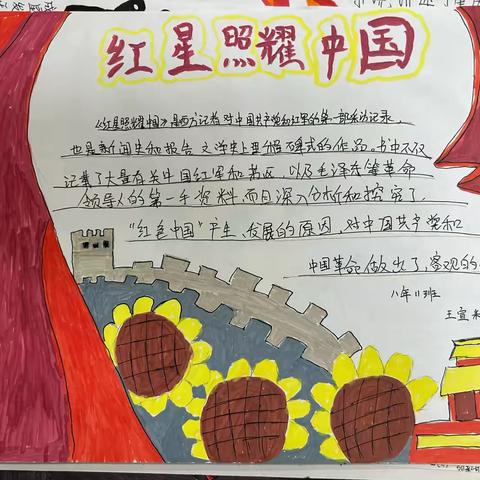 红星照耀中国
《红星照耀中国》是西方记者对中国共产党和红军的第一部采访记录，
也是新闻史和报告文学史上里程碑式的作品。书中不仅
记载了大量有关中国红军和苏区，以及毛泽东等革命
领导人的第一手资料，而且深入分析和探究了
“红色中国”产生、发展的原因，对中国共产党和
中国革命做出了，客观的
八年11班
王宣